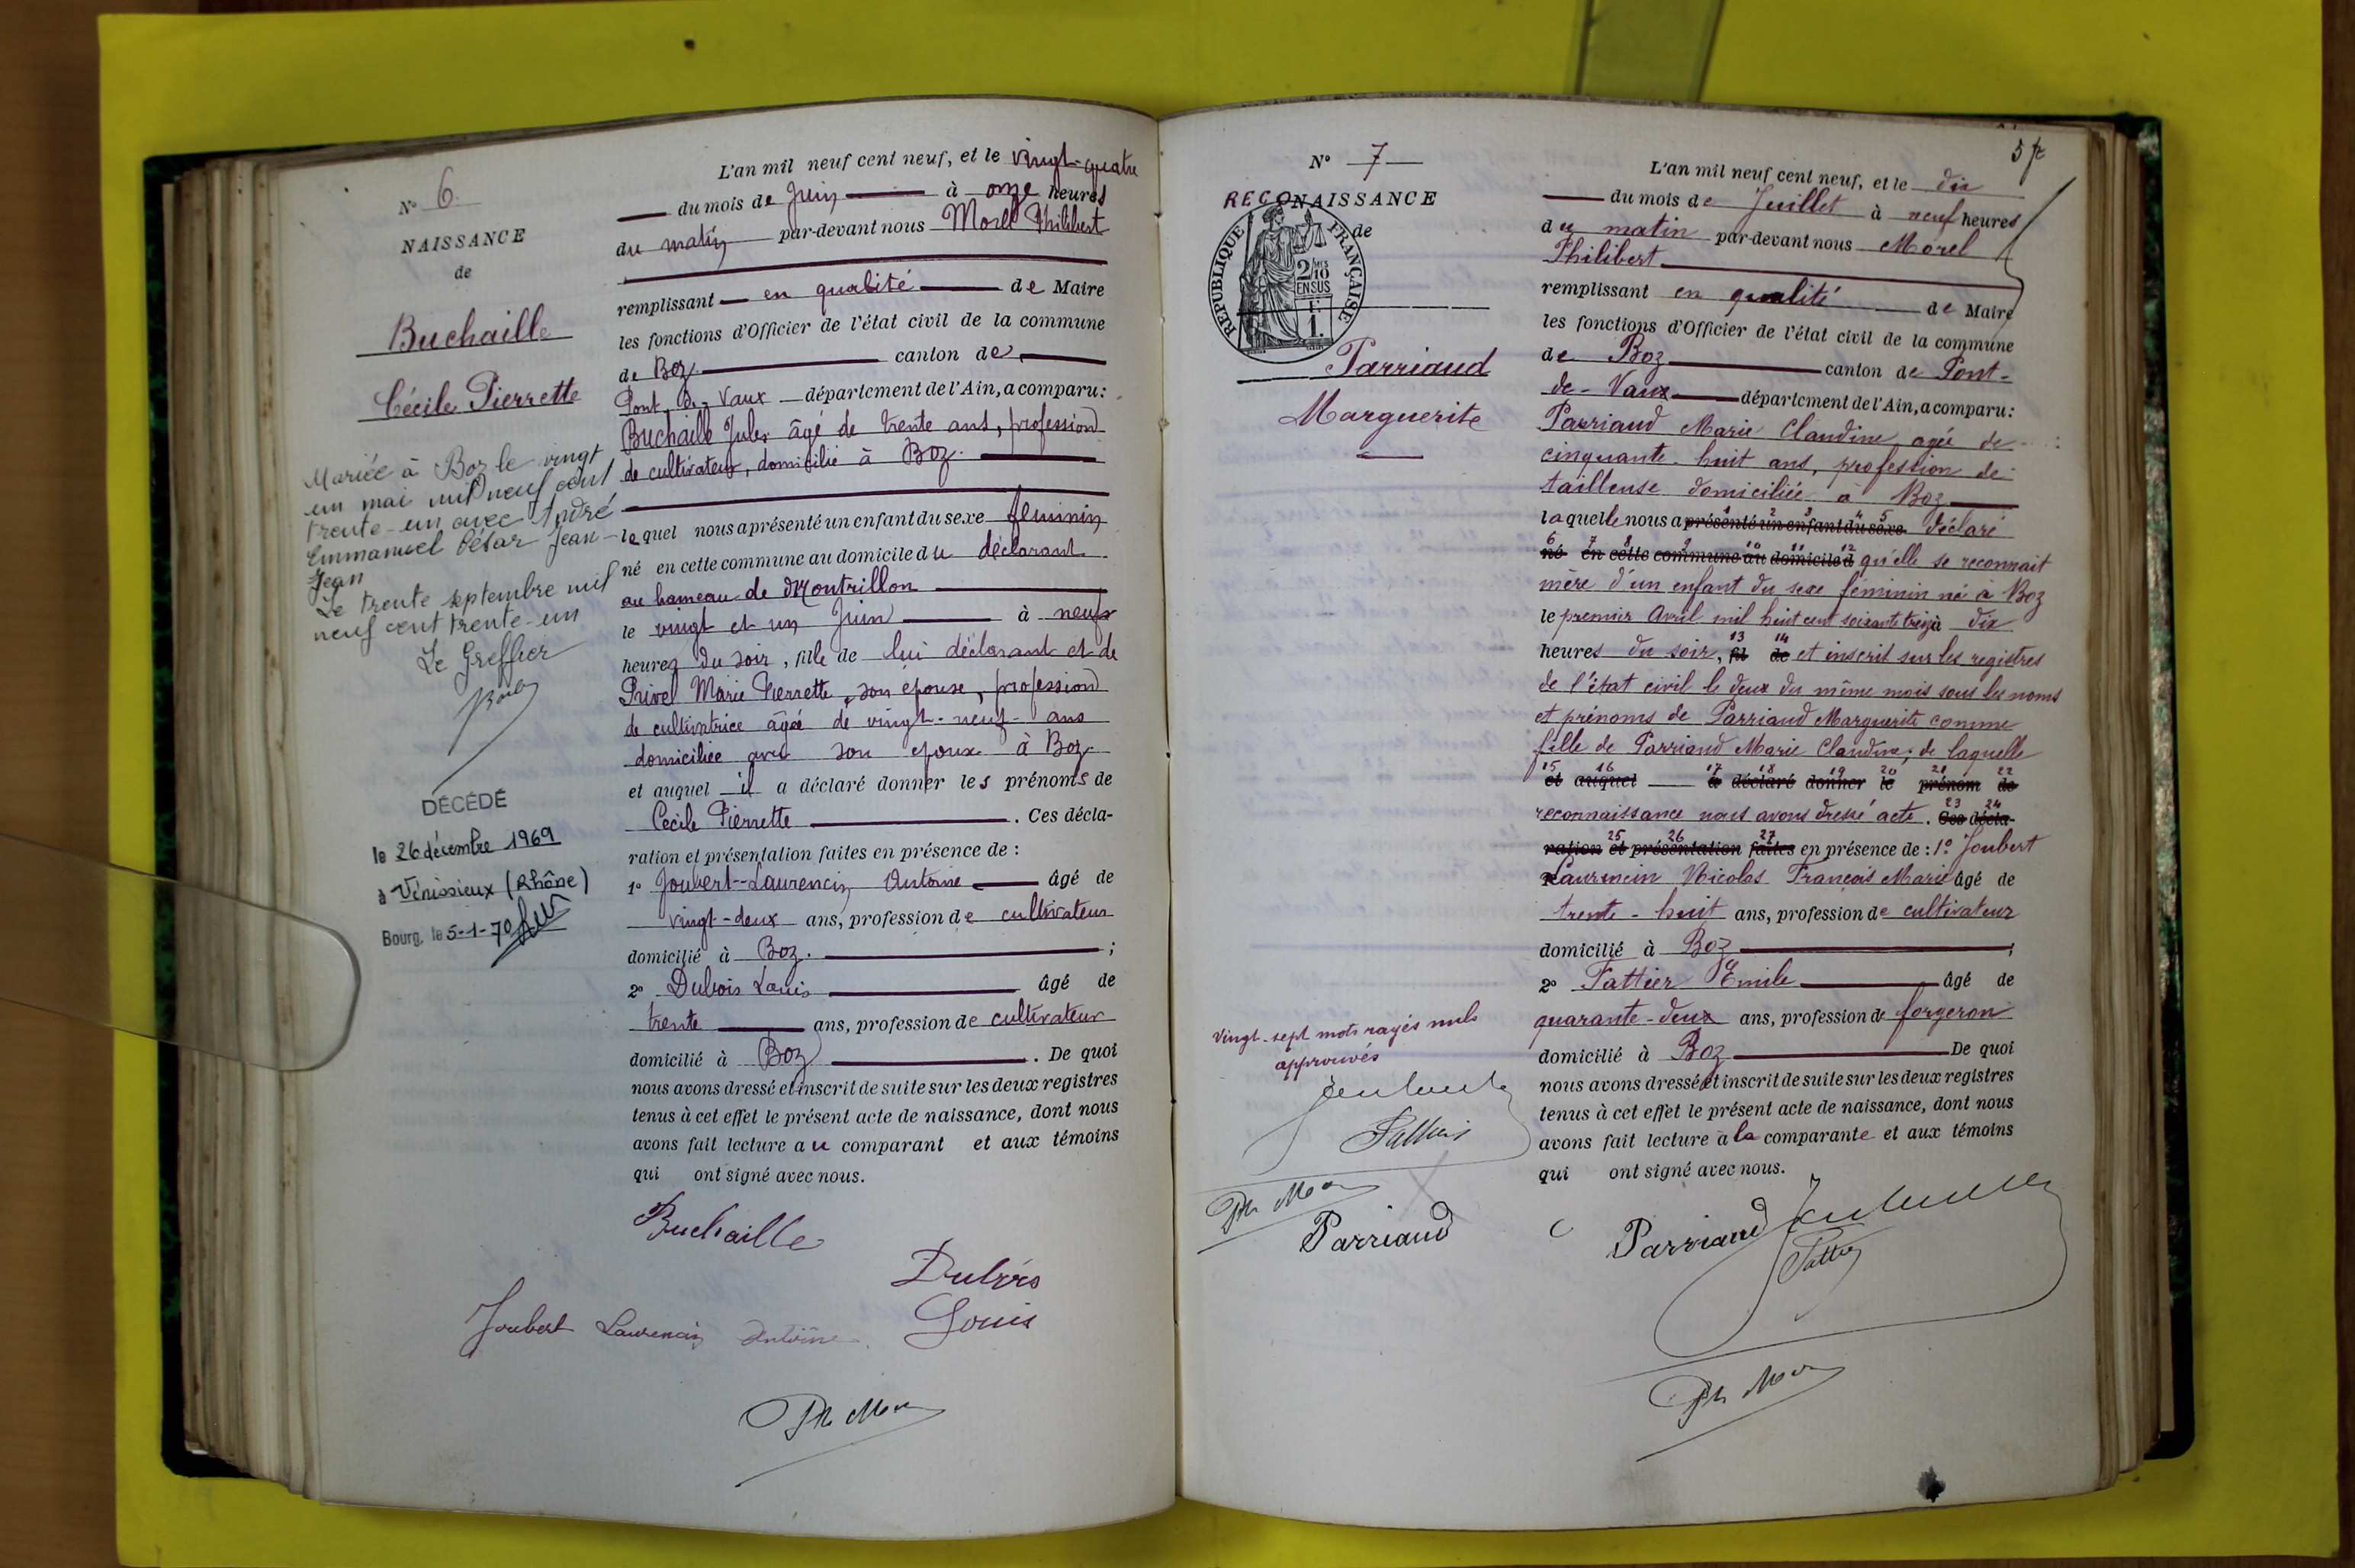 N° 6
NAISSANCE
de
Buchaille
Cécile Pierrette
Mariée à Boz le vingt
un mai mil neuf cent
trente-un avec André
Emmanuel César Jean-
Jean
Le trente septembre mil
neuf cent trente-un
Le Greffier
DÉCÉDÉ
le 26 décembre 1969
à Vénissieux (Rhône)
Bourg, le 5-1-70
L'an mil neuf cent neuf, et le vingt-quatre
du mois de Juin à onze heures
du matin par-devant nous Morel Philibert
remplissant en qualité de Maire
les fonctions d'Officier de l'état civil de la commune
de Boz canton de
Pont-de-Vaux département de l'Ain, a comparu:
Buchaille Jules âgé de trente ans, profession
de cultivateur, domicilié à Boz.
lequel nous a présenté un enfant du sexe féminin
né en cette commune au domicile du déclarant
au hameau de Montrillon
le vingt et un Juin à neuf
heures du soir, fille de lui déclarant et de
Privel Marie Pierrette, son épouse, profession
de cultivatrice âgée de vingt-neuf ans
domiciliée avec son époux à Boz
et auquel il a déclaré donner les prénoms de
Cécile Pierrette . Ces décla-
ration et présentation faites en présence de :
1° Joubert-Laurencin Antoine âgé de
vingt-deux ans, profession de cultivateur
domicilié à Boz. ;
2° Dubois Louis âgé de
trente ans, profession de cultivateur
domicilié à Boz . De quoi
nous avons dressé et inscrit de suite sur les deux registres
tenus à cet effet le présent acte de naissance, dont nous
avons fait lecture au comparant et aux témoins
qui ont signé avec nous.
Buchaille
Dubois
Louis
Joubert Laurencin Antoine
Ph Morel
5
N° 7
RECONAISSANCE
de
REPUBLIQUE FRANÇAISE
2/10 MES
EN SUS
1F
1.
Parriaud
Marguerite
Vingt-sept mots rayés nuls
approuvés
Joubert
Fattier
Ph Morel
Parriaud
L'an mil neuf cent neuf, et le dix
du mois de Juillet à neuf heures
du matin par-devant nous Morel
Philibert
remplissant en qualité de Maire
les fonctions d'Officier de l'état civil de la commune
de Boz canton de Pont-
de-Vaux département de l'Ain, a comparu:
Parriaud Marie Claudine, agée de
cinquante-huit ans, profession de
tailleuse domiciliée à Boz
1 2 3 4 5
laquelle nous a présenté un enfant du sexe déclaré
6 7 8 9 10 11 12
né en cette commune au domicile d qu'elle se reconnait
mère d'un enfant du sexe féminin né à Boz
le premier Avril mil huit cent soixante treize à dix
13 14
heures du soir, fil de et inscrit sur les registres
de l'état civil le deux du même mois sous les noms
et prénoms de Parriaud Marguerite comme
fille de Parriaud Marie Claudine; de laquelle
15 16 17 18 19 20 21 22
et auquel a déclaré donner le prénom de
23 24
reconnaissance nous avons dressé acte. Ces décla-
25 26 27
ration et présentation faites en présence de : 1° Joubert
Laurencin Nicolas François Marie âgé de
trente-huit ans, profession de cultivateur
domicilié à Boz ;
2° Fattier Emile âgé de
quarante-deux ans, profession de forgeron
domicilié à Boz De quoi
nous avons dressé et inscrit de suite sur les deux registres
tenus à cet effet le présent acte de naissance, dont nous
avons fait lecture à la comparante et aux témoins
qui ont signé avec nous.
Parriaud
Joubert
Fattier
Ph Morel